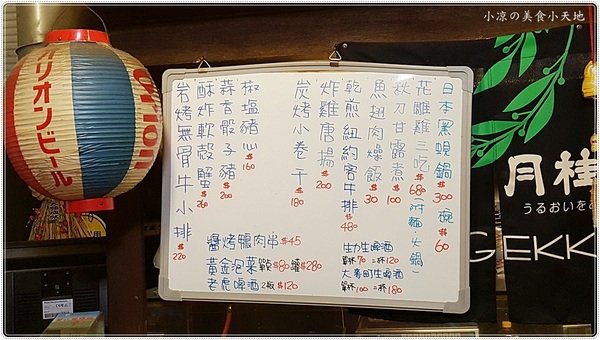 小凉の美食小天地
オリオンビール
ORION
日本黑蜆鍋$300 碗$60
花雕雞三吃$680(附麵、火鍋)
秋刀甘露煮$100
魚翅肉燥飯$30
乾煎紐約客牛排$480
炸雞唐揚$200
炭烤小卷一干$180
椒塩豬心$160
蒜香骰子豬$200
酥炸軟殼蟹$260
岩烤無骨牛小排$220
醬烤鴨肉串$45
黃金泡菜 顆$80 罐$280
老虎啤酒 2瓶$120
生力生啤酒
單杯70 二杯120
大麥町生啤酒
單杯100 二杯180
月桂
うるおいをお
GEKK